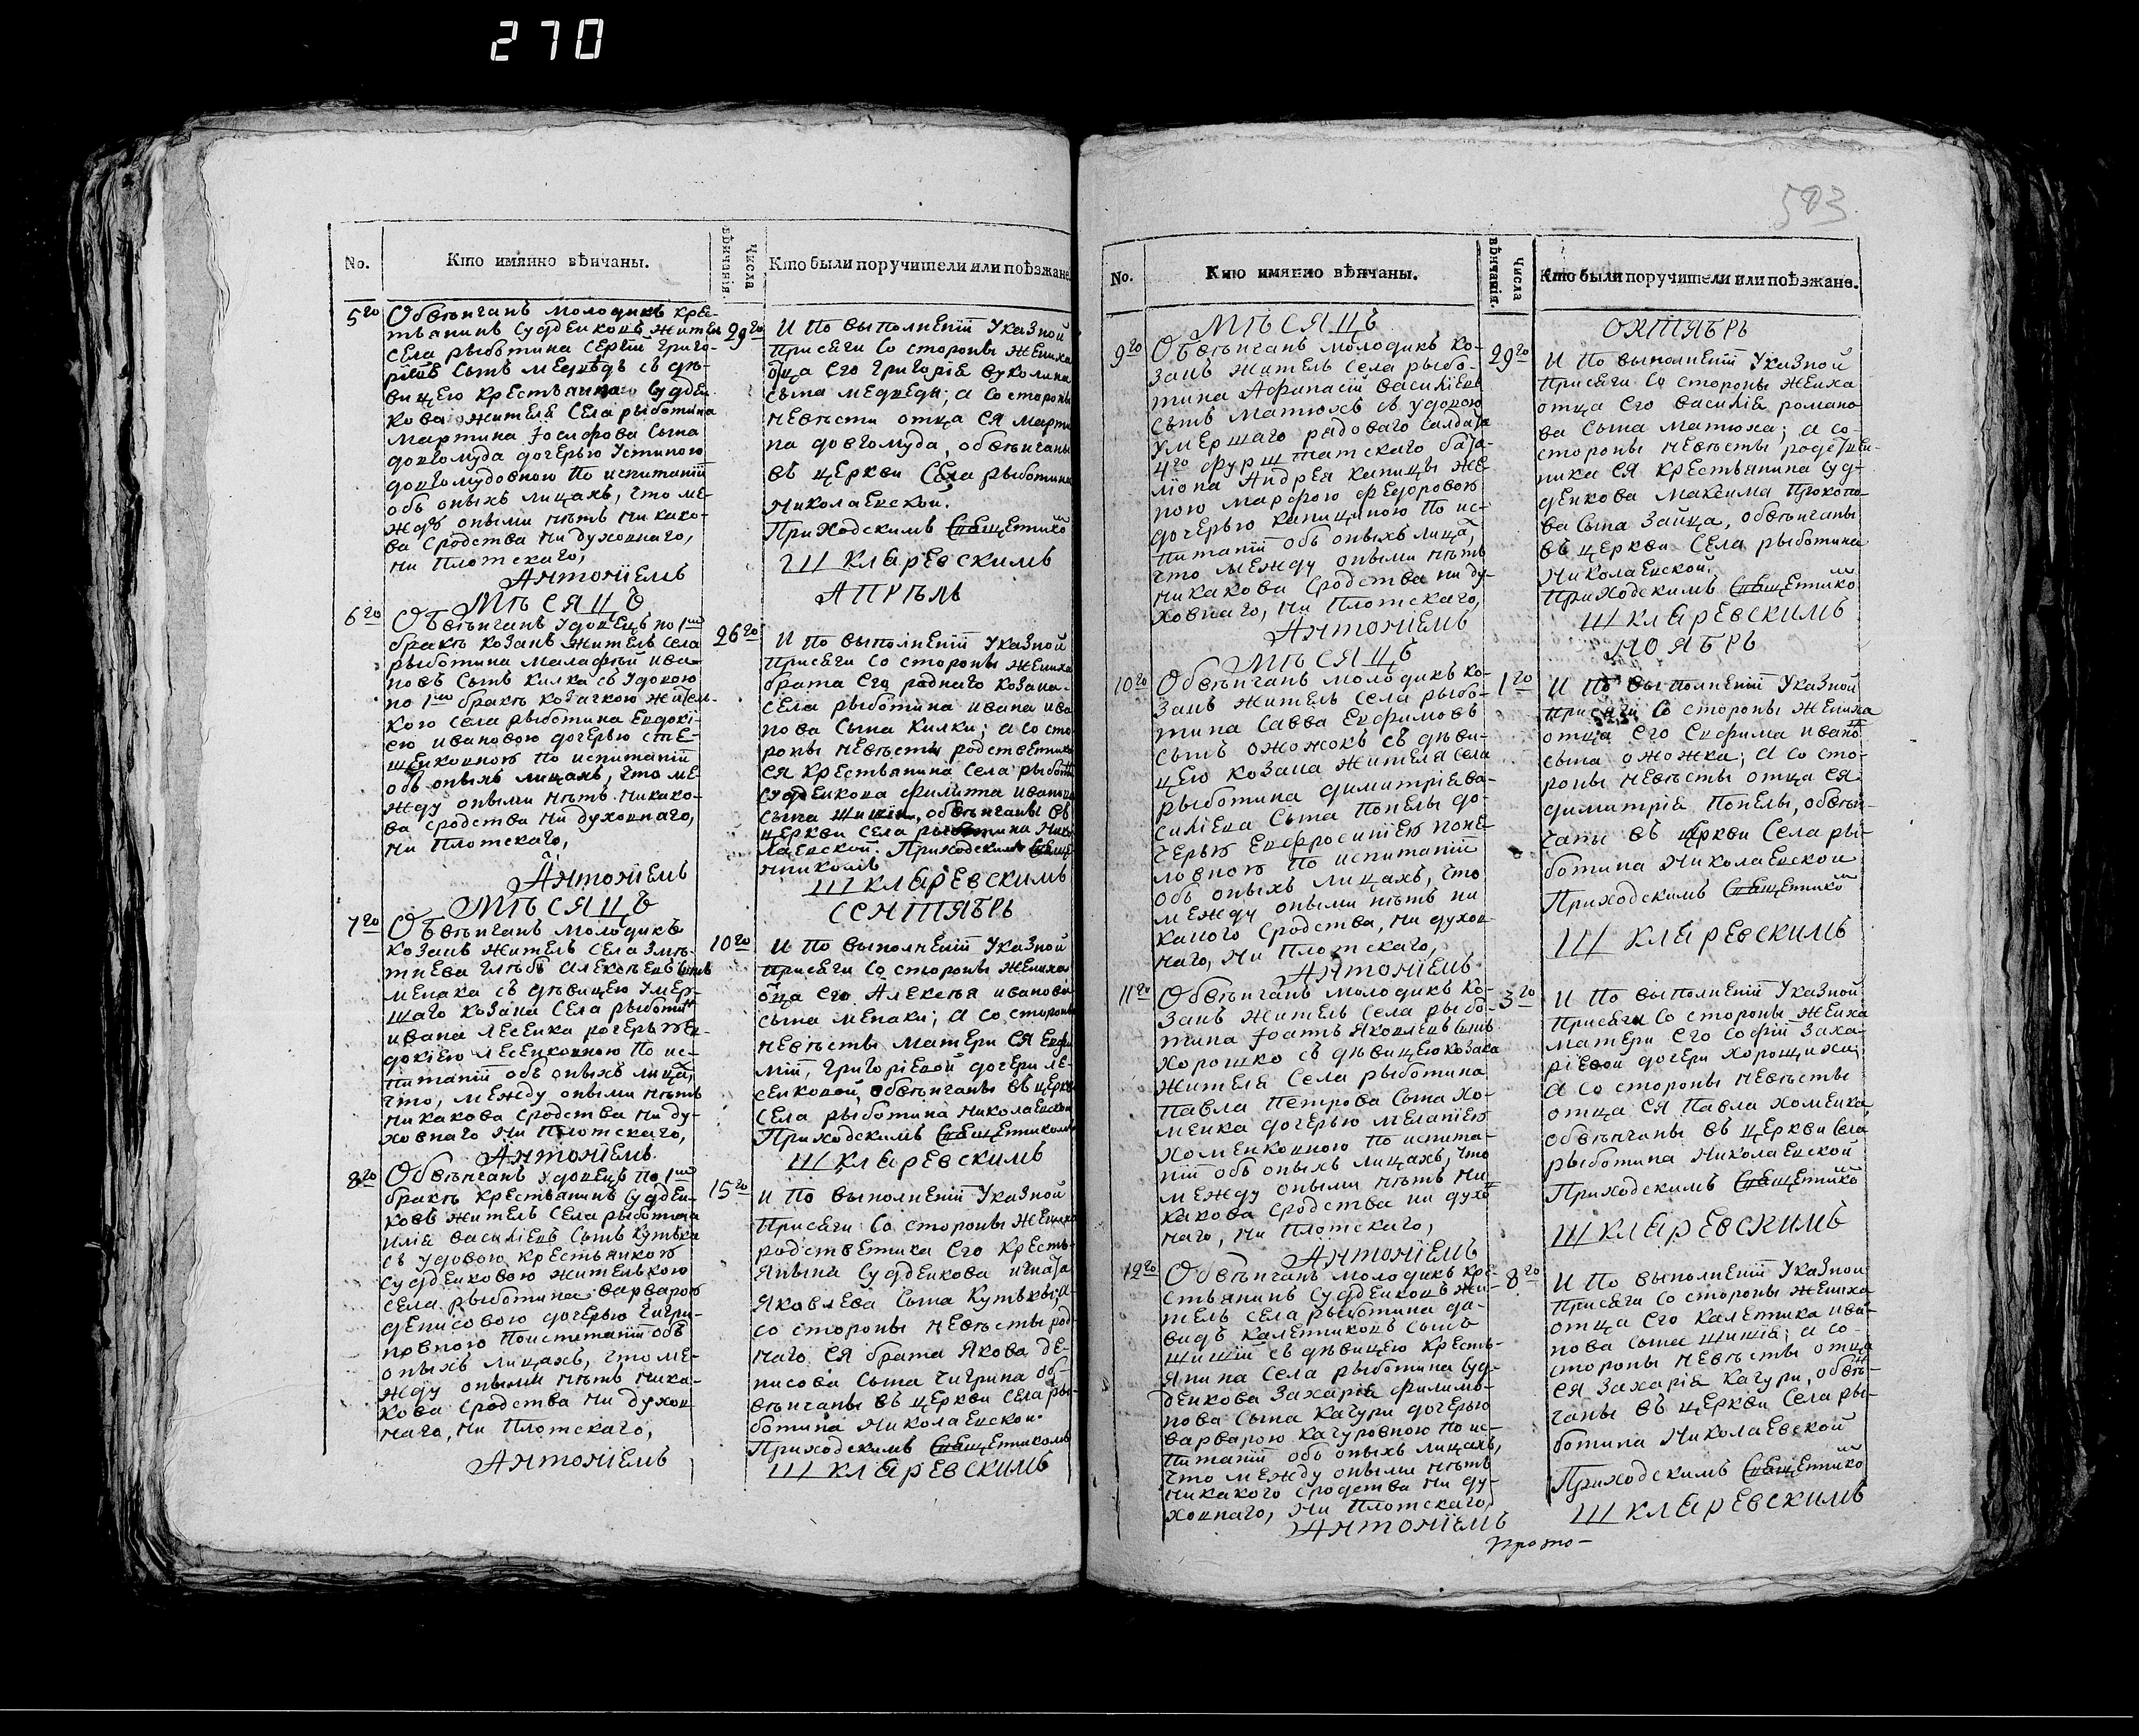 270
593
No.
Кто имянно вѣнчаны.
Числа вѣнчанія.
Кто были поручители или поѣзжане.
5го
Обвѣнчанъ молодикъ крес-
тьянинъ Судденковъ житель
села рыботина Сергій Григо-
ріевъ сынъ медведь съ дѣ-
вицею крестьянина Судден-
кова жителя села рыботина
мартина Іосифова сына
довгомуда дочерью Устиною
довгомудовною по испытаніи
объ оныхъ лицахъ, что ме-
жду оными нѣтъ никако-
ва сродства ни духовнаго,
ни плотскаго,
Антоніемъ
29го
И по выполненіи Указной
присяги со стороны жениха
отца его Григорія вуколина
сына медведя; а со стороны
невѣсти отца ея марти
на довгомуда, обвѣнчаны
въ церкви села рыботина
Николаевской.
Приходскимъ Священнико
Шкляревскимъ
МѢСЯЦЪ
АПРѢЛЬ
6го
Обвѣнчанъ удовецъ по 1мъ
бракѣ козакъ житель села
рыботина малафѣй ива-
новъ сынъ килка съ удовою
по 1мъ бракѣ козачкою житель-
кою села рыботина Евдокі-
ею ивановою дочерью сте-
щенковною по испитаніи
объ оныхъ лицахъ, что ме-
жду оными нѣтъ никако-
ва сродства ни духовнаго,
ни плотскаго,
Антоніемъ
26го
И по выполненіи Указной
присяги со стороны жениха
брата его роднаго козака
села рыботина ивана ива
нова сына килки; а со сто
роны невѣсти родственника
ея крестьянина села рыботина
судденкова филиппа иванова
сына шишія, обвѣнчаны въ
церкви села рыботина Нико
лаевской. Приходскимъ Свяще
нникомъ
Шкляревскимъ
МѢСЯЦЪ
СЕНТЯБРЬ
7го
Обвѣнчанъ молодикъ
козакъ житель села змѣ-
тнева глѣбъ алексѣевъ сынъ
мепака съ дѣвицею умер-
шаго козака села рыботина
ивана лесенка дочерью Ев-
докіею лесенковною по ис-
питаніи объ оныхъ лицах,
что, между оными нѣтъ
никакова сродства ни ду-
ховнаго ни плотскаго,
Антоніемъ
10го
И по выполненіи Указной
присяги со стороны жениха
отца его Алексѣя иванова
сына мепаки; а со стороны
невѣсты матери ея Евфи
міи, григоріевой дочери ле-
сенковой, обвѣнчаны въ церкви
села рыботина николаевской
Приходскимъ Священникомъ
Шкляревскимъ
8го
Обвѣнчанъ удовецъ по 1мъ
бракѣ крестьянинъ судден-
ковъ житель села рыботина
илія василіевъ сынъ кутька
съ удовою крестьянкою
судденковою жителькою
села рыботина варварою
денисовою дочерью чигри-
новною поиспитаніи объ
оныхъ лицахъ, что ме-
жду оными нѣтъ ника-
кова сродства ни духов
наго, ни плотскаго,
Антоніемъ
15го
И по выполненіи Указной
присяги со стороны жениха
родственика его кресть-
янина судденкова игната
яковлева сына кутьки; а
со стороны невѣсты род
наго ея брата якова де-
нисова сына чигрина об-
вѣнчаны въ церкви села ры-
ботина николаевской.
Приходскимъ Священникомъ
Шкляревскимъ
No.
Кто имянно вѣнчаны.
Числа вѣнчанія.
Кто были поручители или поѣзжане.
МѢСЯЦЪ
ОКТЯБРЬ
9го
Обвѣнчанъ молодикъ ко-
закъ житель села рыбо-
тина Афанасій василіевъ
сынъ матюхъ съ удовою
умершаго радоваго салдата
4го фурштатскаго бата-
ліона Андрея капицы же-
ною марфою федоровою
дочерью капициною по ис-
питаніи объ оныхъ лица,
что между оными нѣтъ
никакова сродства ни ду-
ховнаго, ни плотскаго,
Антоніемъ
29го
И по выполненіи Указной
присяги со стороны жениха
отца его василія романо
ва сына матюха; а со-
стороны невѣсты родствен-
ника ея крестьянина суд-
денкова максима прокопо-
ва сына зайца, обвѣнчаны
въ церкви села рыботина
Николаевской.
Приходскимъ Священнико
Шкляревскимъ
МѢСЯЦЪ
НОЯБРЬ
10го
Обвѣнчанъ молодикъ ко-
закъ житель села рыбо-
тина савва Евфимовъ
сынъ ожожокъ съ дѣви-
цею козака жителя села
рыботина димитрія ва-
силіева сына попелы до-
черью Евфросиніею попе-
ловною по испитаніи
объ оныхъ лицахъ, что
между оными нѣтъ ни
какого сродства, ни духов
наго, ни плотскаго,
Антоніемъ
1го
И по выполненіи Указной
присяги со стороны жениха
отца его Евфима ивано
сына ожожка; а со сто-
роны невѣсты отца ея
димитрія попелы, обвѣн-
чаны въ церкви села ры-
ботина Николаевской
Приходскимъ Священнико
Шкляревскимъ
11го
Обвѣнчанъ молодикъ ко-
закъ житель села рыбо-
тина Іоаннъ яковлевъ сынъ
хорошко съ дѣвицею козака
жителя села рыботина
Павла Петрова сына хо-
менка дочерью меланіею
хоменковною по испита-
ніи объ оныхъ лицахъ, что
между оными нѣтъ ни-
какова сродства ни духо
наго, ни плотскаго,
Антоніемъ
3го
И по выполненіи Указной
присяги со стороны жениха
матери его софіи заха-
ріевой дочери хорошихи;
а со стороны невѣсты
отца ея Павла хоменка,
обвѣнчаны въ церкви села
рыботина Николаевской
Приходскимъ Священнико
Шкляревскимъ
12го
Обвѣнчанъ молодикъ кре-
стьянинъ судденковъ жи-
тель села рыботина да-
видъ калениковъ сынъ
шишій съ дѣвицею кресть-
янина села рыботина суд-
денкова захарія филимо-
нова сына качури дочерью
варварою качуровною по ис-
питаніи объ оныхъ лицахъ,
что между оными нѣтъ
никакого сродства ни ду-
ховнаго, ни плотскаго,
Антоніемъ
8го
И по выполненіи Указной
присяги со стороны жениха
отца его каленика ива-
нова сына шишія; а со-
стороны невѣсты отца
ея захарія качури, обвѣн-
чаны въ церкви села ры-
ботина Николаевской
Приходскимъ Священнико
Шкляревскимъ
прото-